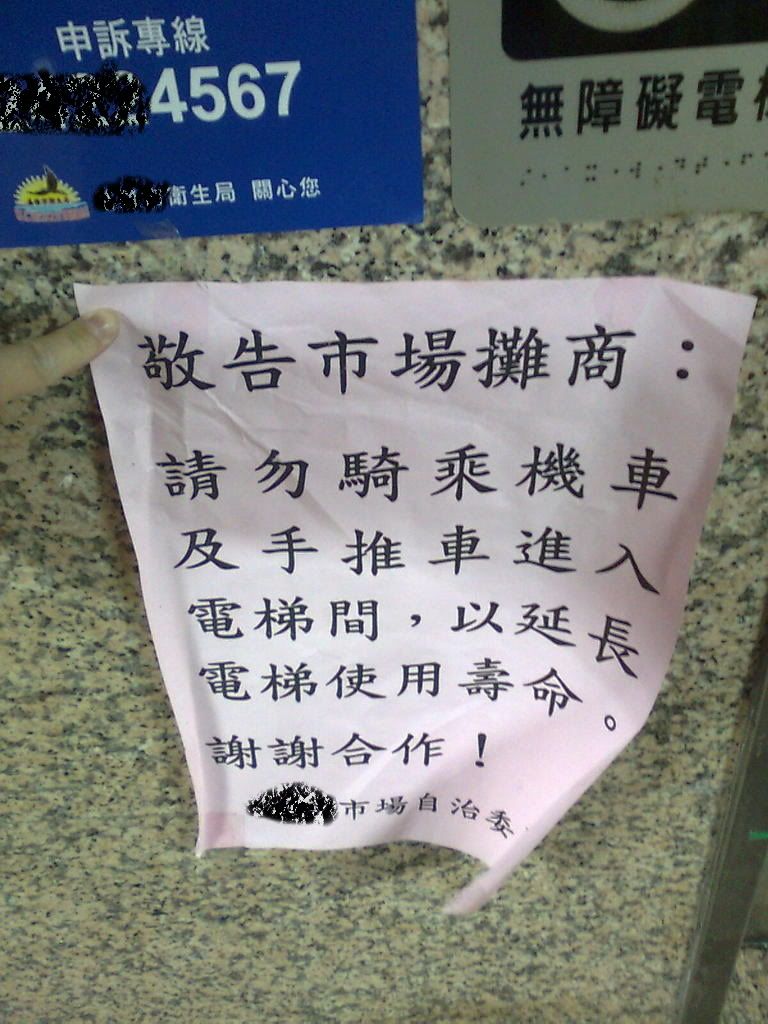 申訴專線
4567
衛生局 關心您
無障礙電
敬告市場攤商：
請勿騎乘機車
及手推車進入
電梯間，以延長
電梯使用壽命。
謝謝合作！
市場自治委